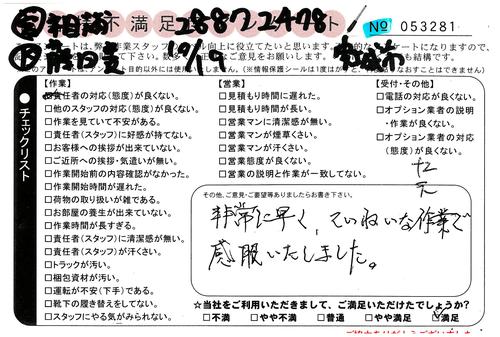 不満足 28872478 ト № 053281
10/19
【作業】
責任者の対応(態度)が良くない。
□他のスタッフの対応(態度)が良くない。
□作業を見ていて不安がある。
□責任者(スタッフ)に好感が持てない。
□お客様への挨拶が出来ていない。
□ご近所への挨拶・気遣いが無い。
□作業開始前の内容確認がなかった。
□作業開始時間が遅れた。
□荷物の取り扱いが雑である。
□お部屋の養生が出来ていない。
□作業時間が長すぎる。
□責任者(スタッフ)に清潔感が無い。
□責任者(スタッフ)が汗くさい。
□トラックが汚い。
□梱包資材が汚い。
□運転が不安(下手)である。
□靴下の履き替えをしてない。
□スタッフにやる気がみられない。
【営業】
□見積もり時間に遅れた。
□見積もり時間が長い。
□営業マンに清潔感が無い。
□営業マンが煙草くさい。
□営業マンが汗くさい。
□営業態度が良くない。
□営業の説明と作業が一致してない。
【受付・その他】
□電話の対応が良くない。
□オプション業者の説明
・作業が良くない。
□オプション業者の対応
(態度)が良くない。
●チェックリスト
その他、ご意見・ご要望等ありましたらお書き下さい。
非常に早く、ていねいな作業で
感服いたしました。
☆当社をご利用いただきまして、ご満足いただけたでしょうか?
□不満 □やや不満 □普通 □やや満足 ☑満足